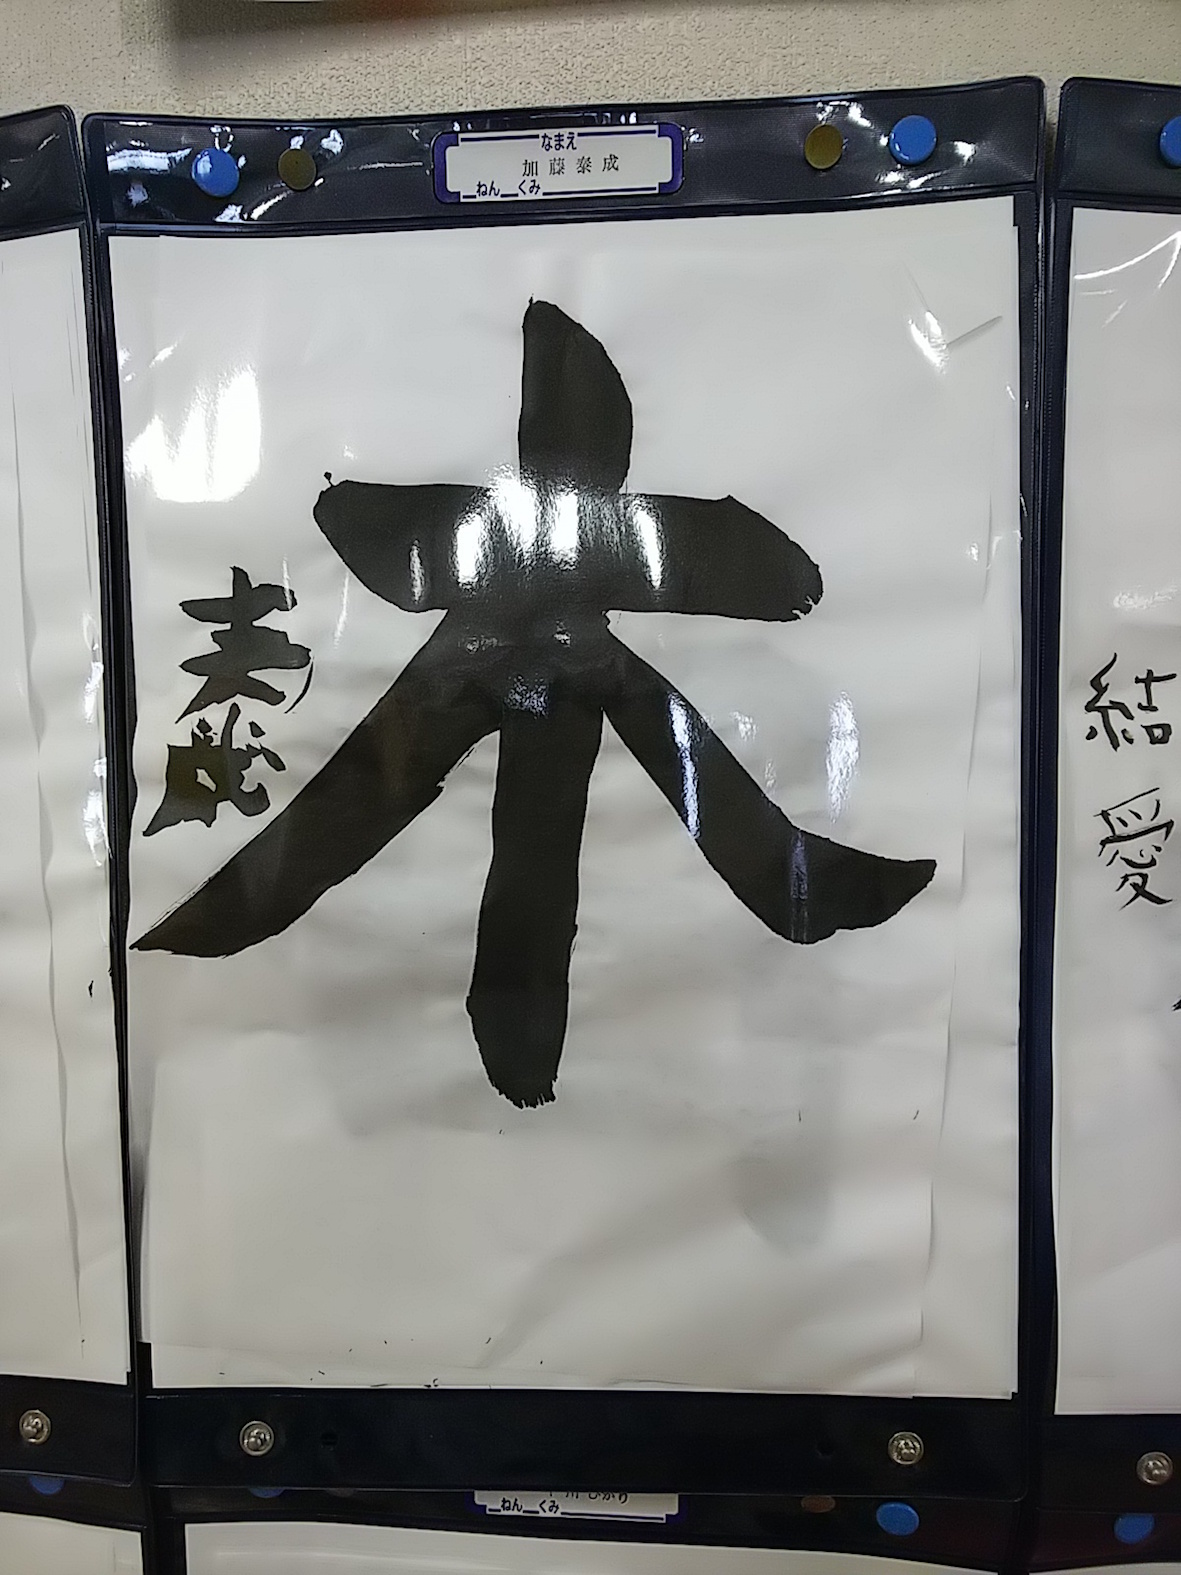 なまえ
加藤泰成
ねん くみ
木
泰成
結愛
ねん くみ